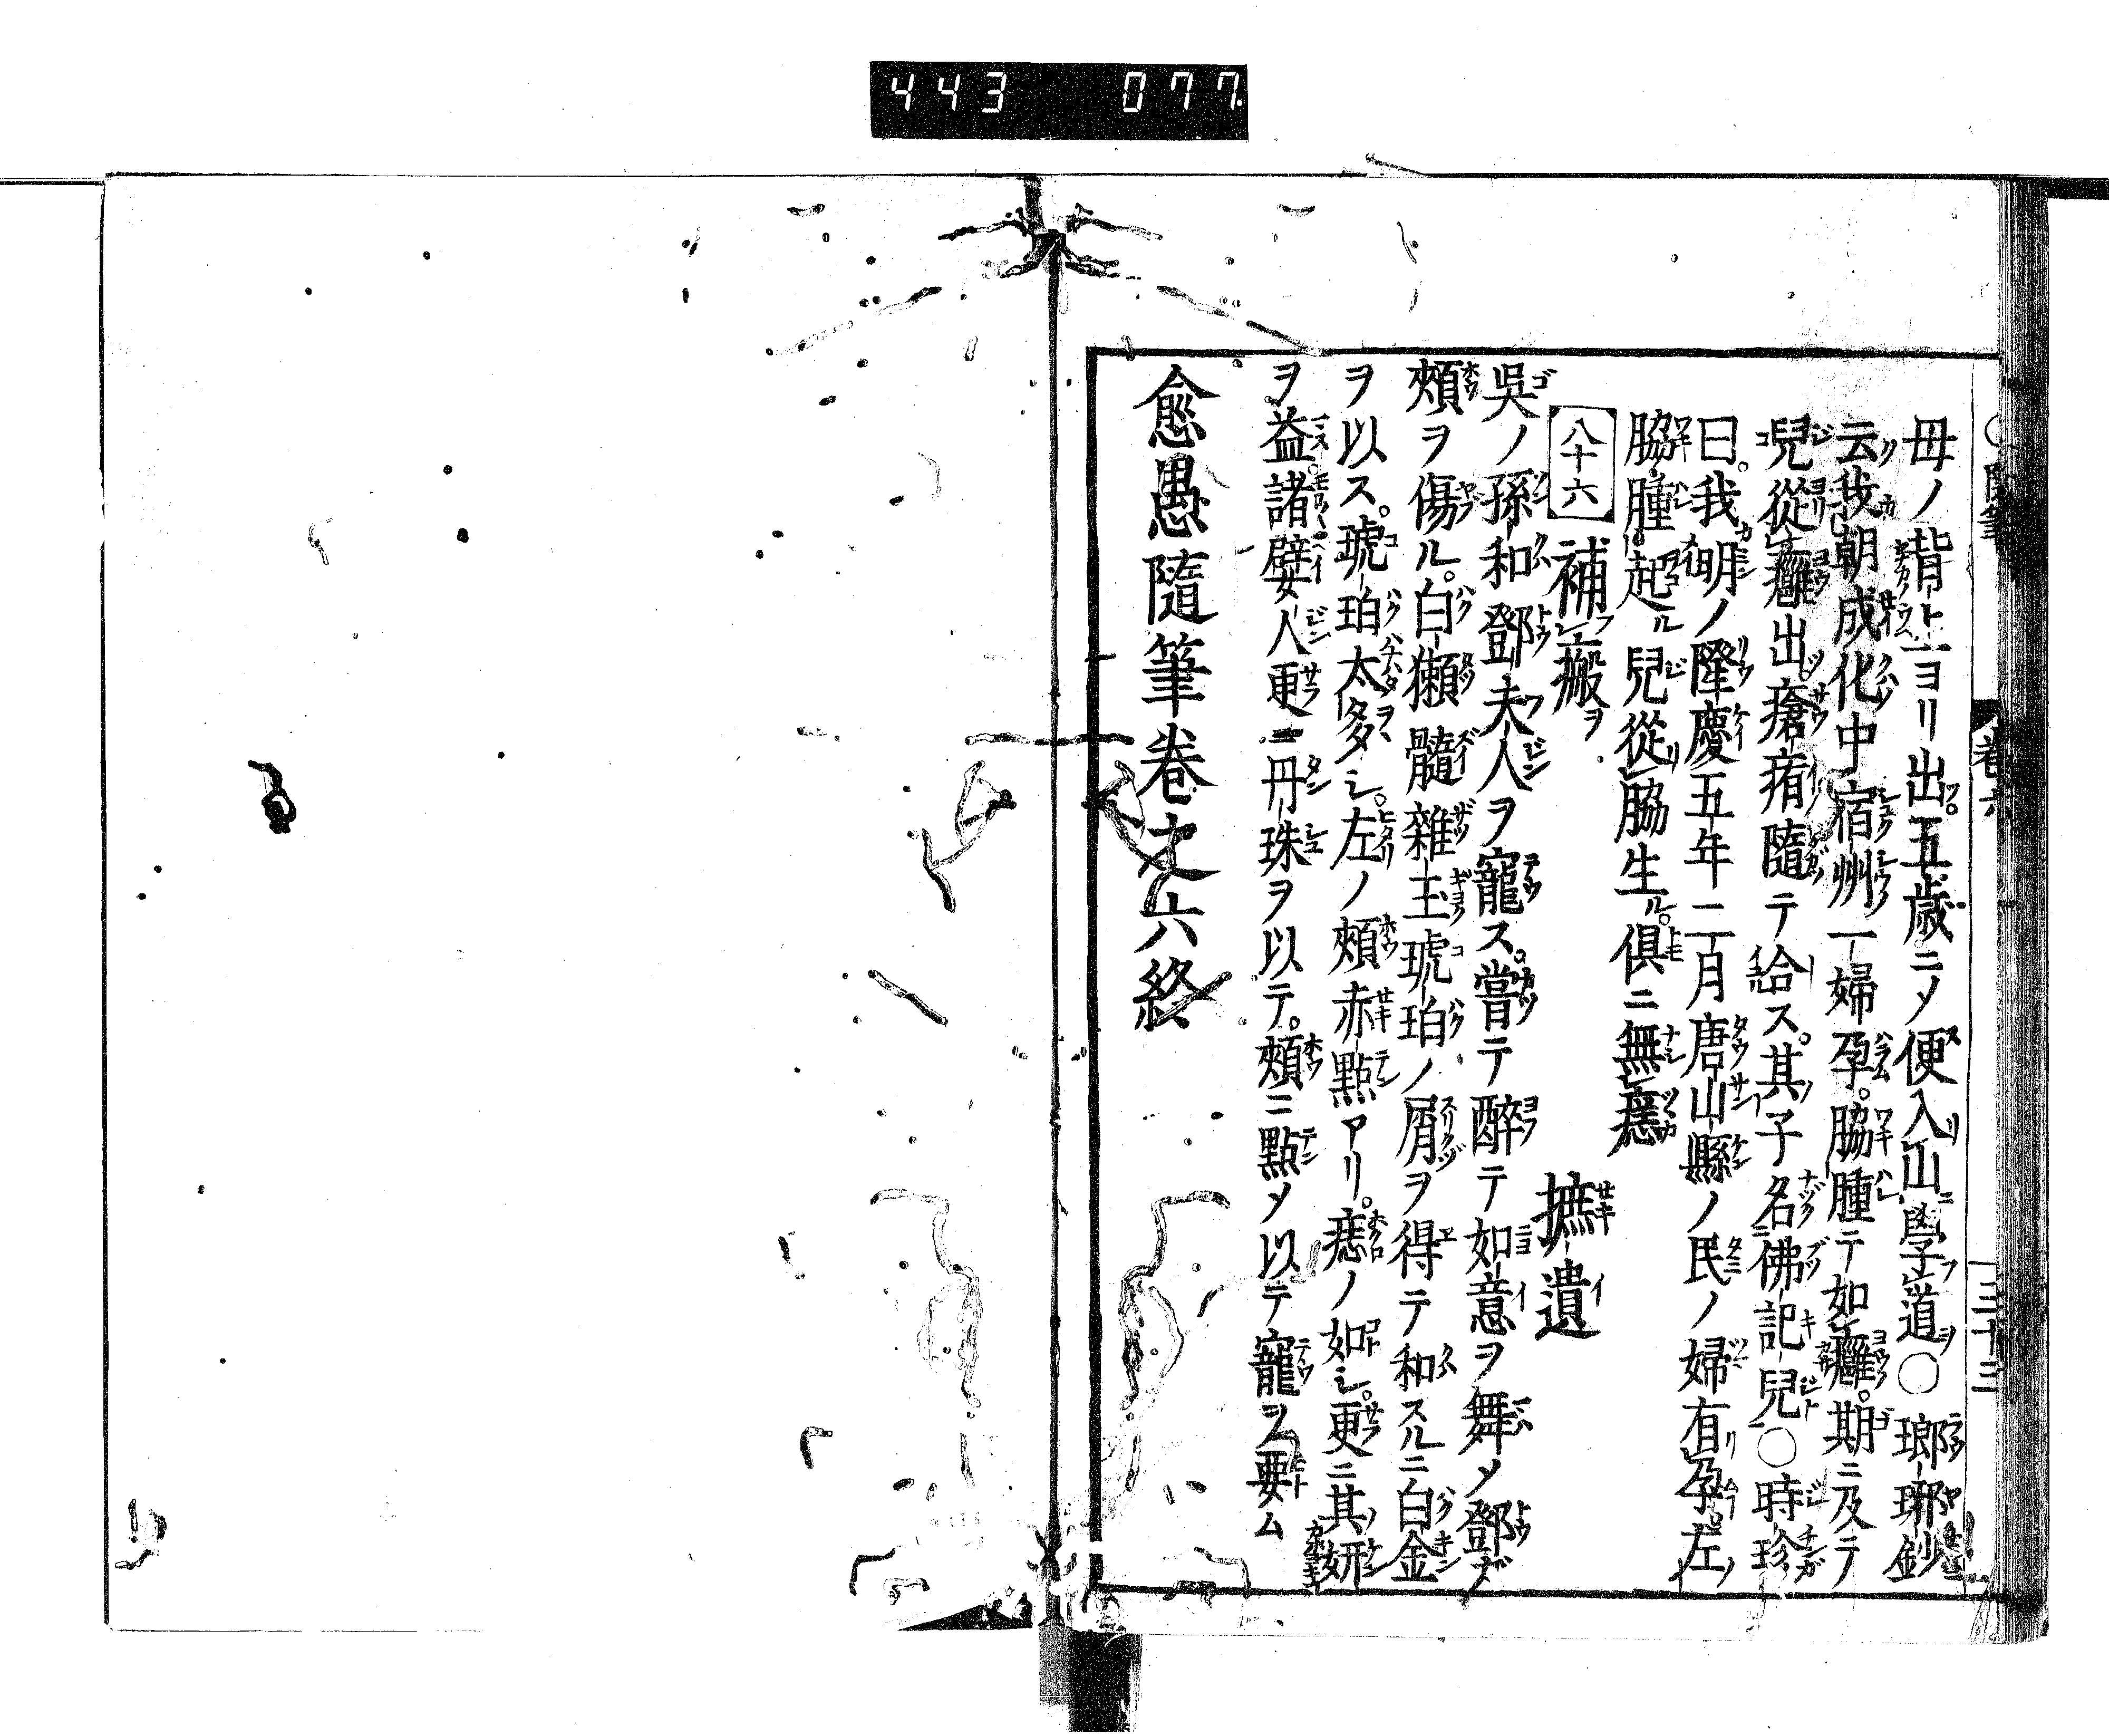 443 077
母ノ背上ヨリ出。五歳ニ〆便入山學道○瑯琊鈔
云我朝成化中宿州一婦孕。脇腫テ如癰。期ニ及テ
兒從癰出。瘡痏隨テ給ス。其子名佛記兒○時珍
曰。我明ノ隆慶五年二月唐山縣ノ民ノ婦有孕。左
脇腫起ル兒從脇生ル。俱ニ無恙
八十六 補搬ヲ 摭遺
吳ノ孫和鄧夫人ヲ寵ス。嘗テ醉テ如意ヲ舞〆鄧ガ
頰ヲ傷ル。白獺髓雜玉琥珀ノ屑ヲ得テ和スルニ白金
ヲ以ス。琥珀太多シ。左ノ頰赤點アリ。痣ノ如シ。更ニ其妍
ヲ益ス。諸嬖人更ニ丹珠ヲ以テ。頰ニ點〆以テ寵ヲ要ム
愈愚隨筆卷之六終
卷六
三十三